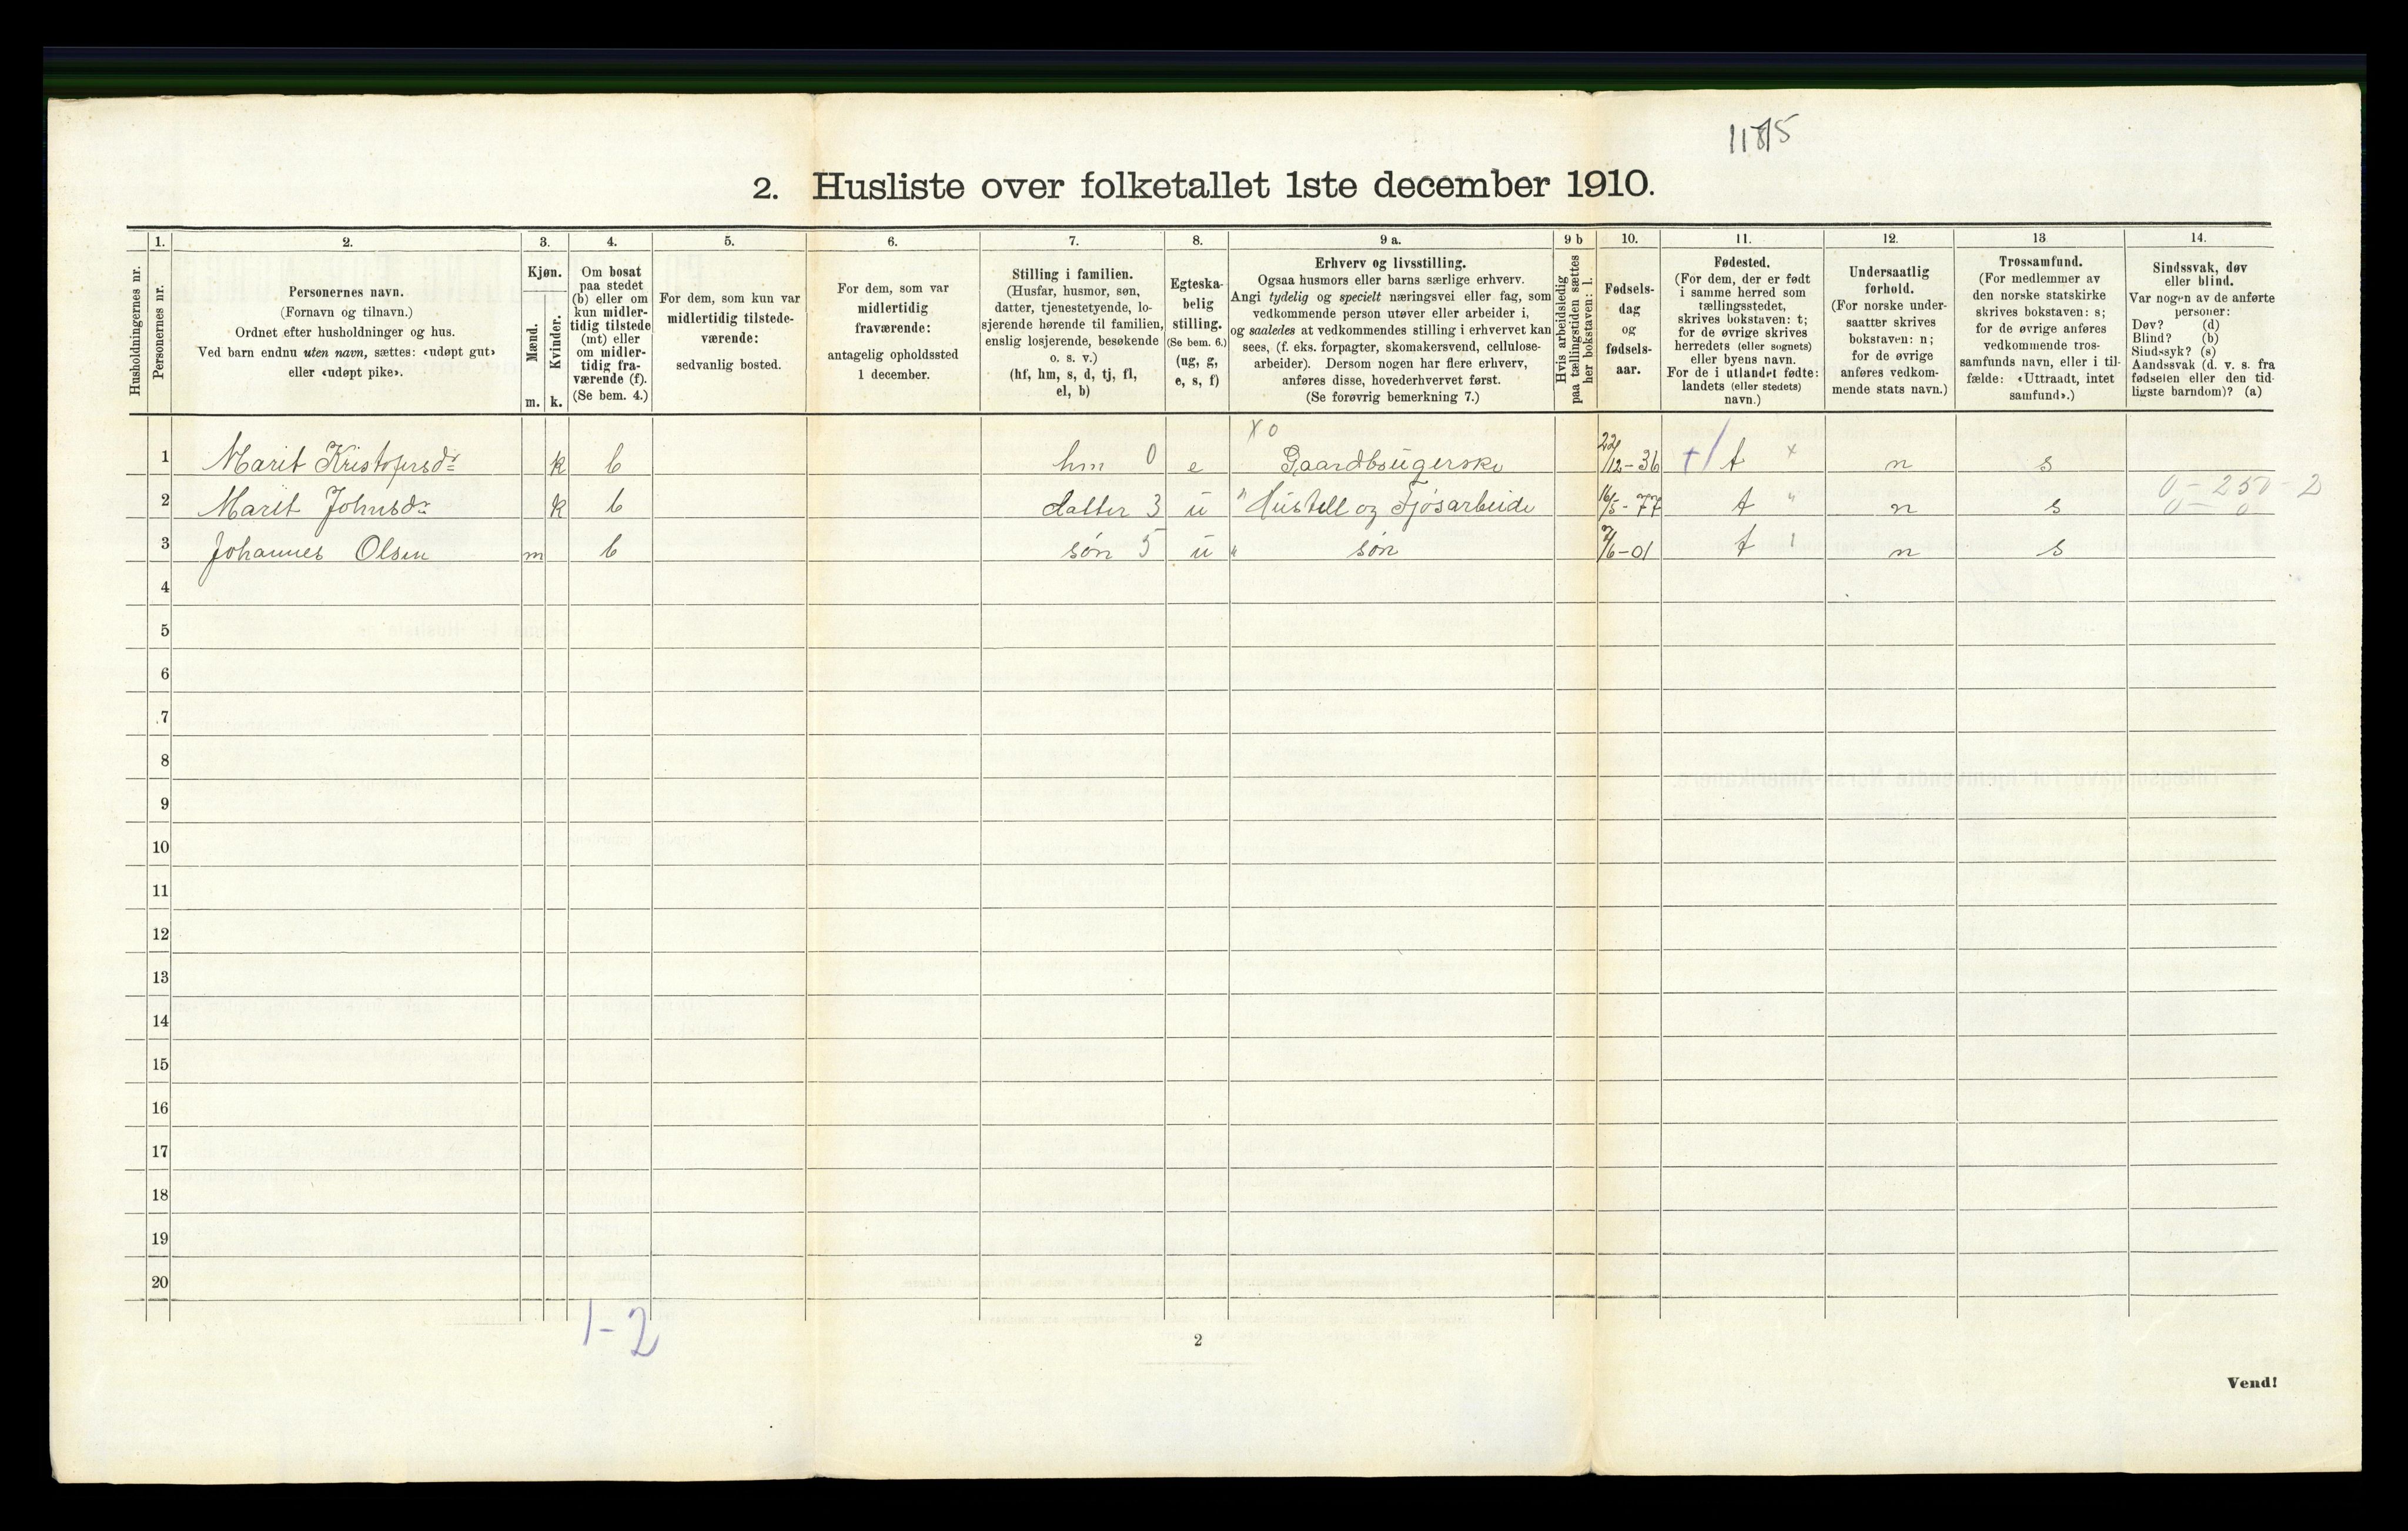 1185
2. Husliste over folketallet 1ste december 1910.
Husholdningernes nr.
1.
Personernes nr.
2.
Personernes navn.
(Fornavn og tilnavn.)
Ordnet efter husholdninger og hus.
Ved barn endnu uten navn, sættes: «udøpt gut»
eller «udøpt pike».
3.
Kjøn.
Mænd.
Kvinder.
m. k.
4.
Om bosat
paa stedet
(b) eller om
kun midler-
tidig tilstede
(mt) eller
om midler-
tidig fra-
værende (f).
(Se bem. 4.)
5.
For dem, som kun var
midlertidig tilstede-
værende:
sedvanlig bosted.
6.
For dem, som var
midlertidig
fraværende:
antagelig opholdssted
1 december.
7.
Stilling i familien.
(Husfar, husmor, søn,
datter, tjenestetyende, lo-
sjerende hørende til familien,
enslig losjerende, besøkende
o. s. v.)
(hf, hm, s, d, tj, fl,
el, b)
8.
Egteska-
belig
stilling.
(Se bem. 6.)
(ug, g,
e, s, f)
9 a.
Erhverv og livsstilling.
Ogsaa husmors eller barns særlige erhverv.
Angi tydelig og specielt næringsvei eller fag, som
vedkommende person utøver eller arbeider i,
og saaledes at vedkommendes stilling i erhvervet kan
sees, (f. eks. forpagter, skomakersvend, cellulose-
arbeider). Dersom nogen har flere erhverv,
anføres disse, hovederhvervet først.
(Se forøvrig bemerkning 7.)
9 b
Hvis arbeidsledig
paa tællingstiden sættes
her bokstaven: l.
10.
Fødsels-
dag
og
fødsels-
aar.
11.
Fødested.
(For dem, der er født
i samme herred som
tællingsstedet,
skrives bokstaven: t;
for de øvrige skrives
herredets (eller sognets)
eller byens navn.
For de i utlandet fødte:
landets (eller stedets)
navn.)
12.
Undersaatlig
forhold.
(For norske under-
saatter skrives
bokstaven: n;
for de øvrige
anføres vedkom-
mende stats navn.)
13
Trossamfund.
(For medlemmer av
den norske statskirke
skrives bokstaven: s;
for de øvrige anføres
vedkommende tros-
samfunds navn, eller i til-
fælde: «Uttraadt, intet
samfund».)
14.
Sindssvak, døv
eller blind.
Var nogen av de anførte
personer:
Døv? (d)
Blind? (b)
Sindssyk? (s)
Aandssvak (d. v. s. fra
fødselen eller den tid-
ligste barndom)? (a)
x 0
1 Marit Kristofersdr k b hm 0 e Gaardbrugerske 22/12-36 +/ t x n s
0 - 250 - 2
2 Marit Johnsdr k b datter 3 u " Hustell og Fjøsarbeide 16/5-77 t " n s 0 - 0
3 Johannes Olsen m b søn 5 u " søn /6-01 t n s
4
5
6
7
8
9
10
11
12
13
14
15
16
17
18
19
20
1-2
2
Vend!